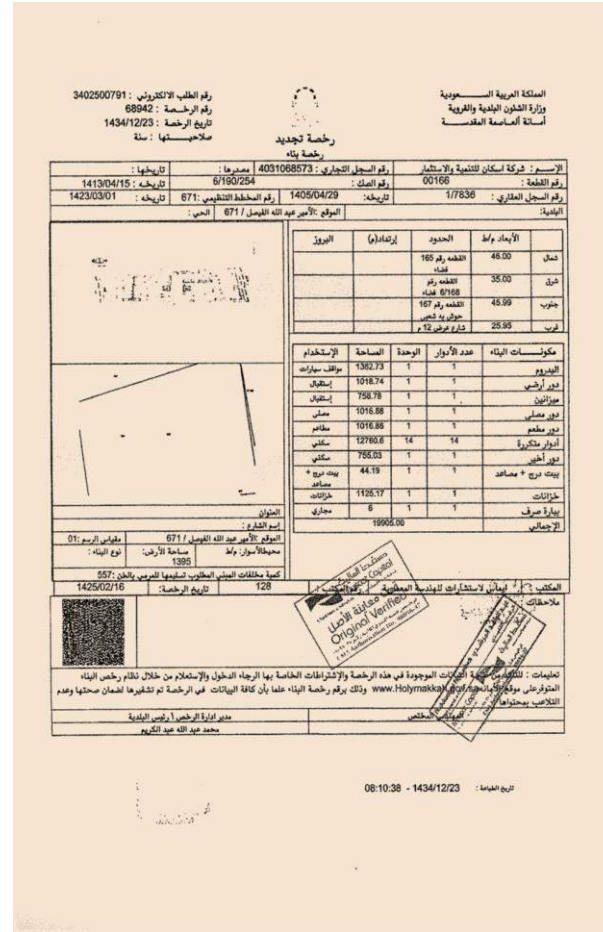 المملكة العربية الســـعودية
وزارة الشئون البلدية والقروية
أمـــانة ألعـاصمة المقدســـة
رقم الطلب الالكتروني : 3402500791
رقم الرخـصـة : 68942
تاريخ الرخصة : 1434/12/23
صلاحيـــتها : سنة
رخصة تجديد
رخصة بناء
الإســـم : شركة اسكان للتنمية والاستثمار رقم السجل التجاري : 4031068573 مصدرها : تاريخها :
رقم القطعة : 00166 رقم الصك : 6/190/254 تاريخه : 1413/04/15
رقم السجل العقاري : 1/7836 تاريخه: 1405/04/29 رقم المخطط التنظيمي :671 تاريخه : 1423/03/01
البلدية: الموقع :الأمير عبد الله الفيصل / 671 الحي :
الأبعاد م/ط الحدود إرتداد(م) البروز
شمال 46.00 القطعه رقم 165 فضاء
شرق 35.00 القطعه رقم 6/168 فضاء
جنوب 45.99 القطعه رقم 167 حوش به شعبي
غرب 25.95 شارع عرض 12 م
مكونـــات البناء عدد الأدوار الوحدة المساحة الإستخدام
البدروم 1 1 1362.73 مواقف سيارات
دور أرضي 1 1 1018.74 إستقبال
ميزانين 1 1 758.78 إستقبال
دور مصلى 1 1 1016.88 مصلى
دور مطعم 1 1 1016.88 مطاعم
أدوار متكررة 14 14 12760.6 سكني
دور أخير 1 1 755.03 سكني
بيت درج + مصاعد 1 1 44.19 بيت درج + مصاعد
خزانات 1 1 1125.17 خزانات
بيارة صرف 1 1 6 مجاري
الإجمالي 19905.00
العنوان
إسم الشارع :
الموقع :الأمير عبد الله الفيصل / 671 مقياس الرسم :01
محيطالأسوار: م/ط مساحة الأرض: 1395 نوع البناء :
كمية مخلفات المبنى المطلوب تسليمها للمرمى بالطن :557
المكتب : لاستشارات للهندسة المعمارية رقم المكتب : 128 تاريخ الرخصة: 1425/02/16
ملاحظات
تمت معاينة الأصل
Original Verified
تعليمات : للتأكد من البيانات الموجودة في هذه الرخصة والإشتراطات الخاصة بها الرجاء الدخول والإستعلام من خلال نظام رخص البناء
المتوفرعلى موقع www.Holymakkah.gov.sa وذلك برقم رخصة البناء علما بأن كافة البيانات في الرخصة تم تشفيرها لضمان صحتها وعدم
التلاعب بمحتواها
المختص
مدير ادارة الرخص / رئيس البلدية
محمد عبد الله عبد الكريم
تاريخ الطباعة : 1434/12/23 - 08:10:38